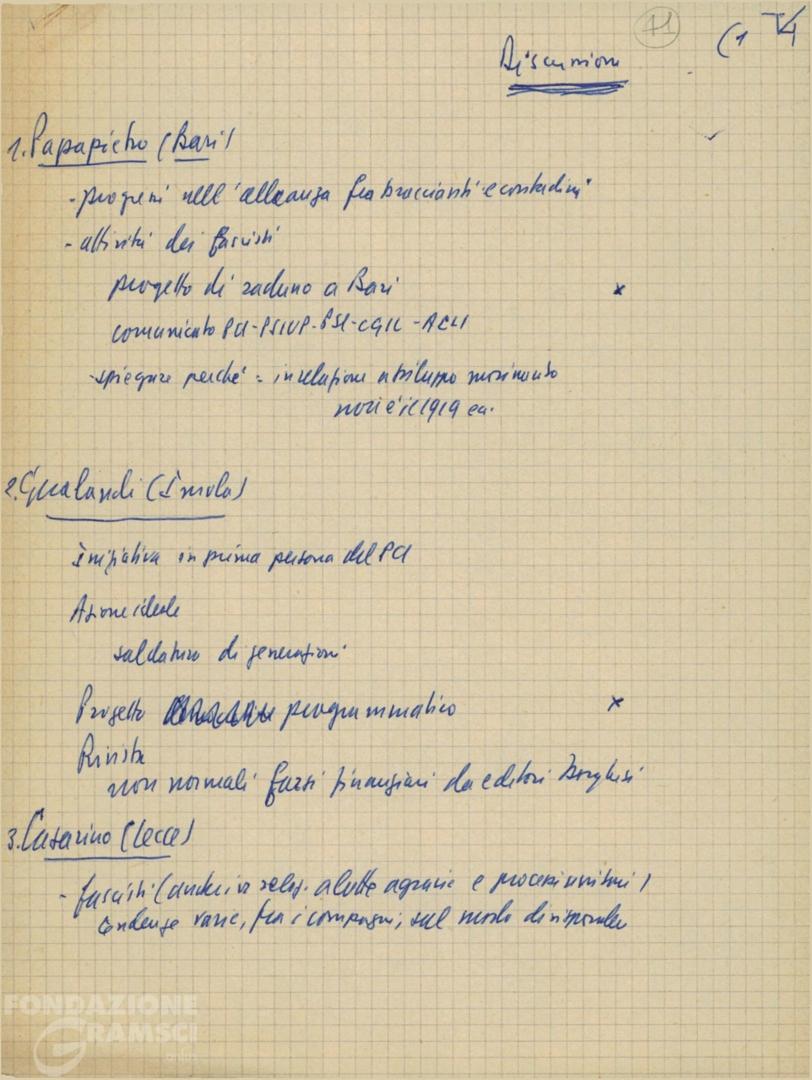 41
(1
Discussione
1. Papapietro (Bari)
- progressi nell'alleanza fra braccianti e contadini
- attività dei fascisti
progetto di raduno a Bari x
comunicato PCI-PSIUP-PSI-CGIL-ACLI
- spiegare perché = in relazione a sviluppo movimento
non è il 1919 ecc.
2. Gualandi (Imola)
Iniziativa in prima persona del PCI
Azione ideale
saldatura di generazioni
Progetto programmatico x
Rivista
non normali farsi finanziare da editori borghesi
3. Casarino (Lecce)
- fascisti (anche in relaz. a lotte agrarie e processi unitari)
tendenze varie, fra i compagni, sul modo di rispondere
FONDAZIONE
GRAMSCI